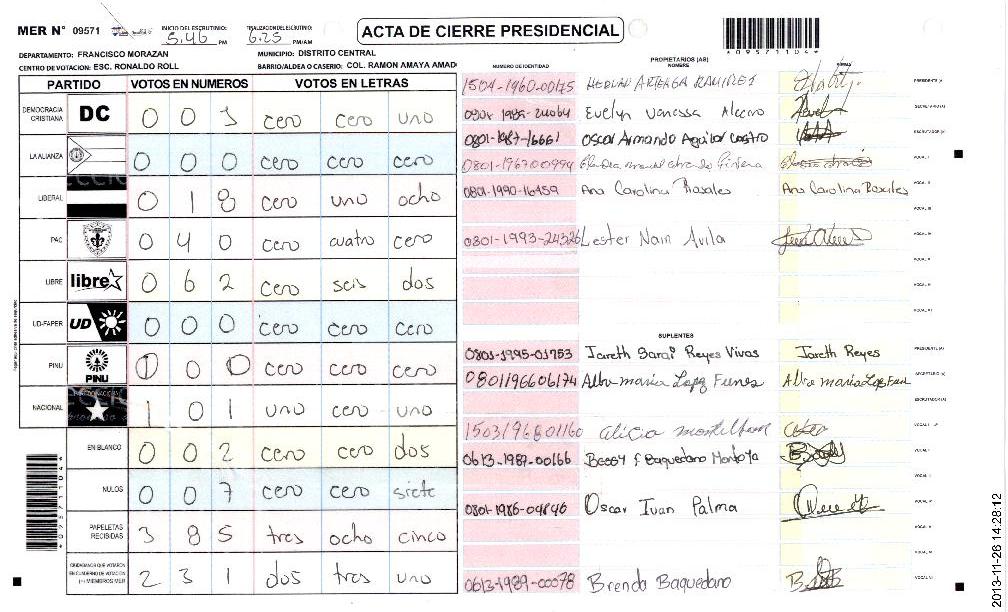 MER N° 09571 INICIO DEL ESCRUTINIO: 5:46 PM FINALIZACION DEL ESCRUTINIO: 6:25 PM/AM
ACTA DE CIERRE PRESIDENCIAL
*09571104*
DEPARTAMENTO: FRANCISCO MORAZAN MUNICIPIO: DISTRITO CENTRAL
CENTRO DE VOTACION: ESC. RONALDO ROLL BARRIO/ALDEA O CASERIO: COL. RAMON AMAYA AMAD
PARTIDO VOTOS EN NUMEROS VOTOS EN LETRAS
DEMOCRACIA CRISTIANA DC 0 0 1 cero cero uno
LA ALIANZA 0 0 0 cero cero cero
LIBERAL 0 1 8 cero uno ocho
PAC 0 4 0 cero cuatro cero
LIBRE libre 0 6 2 cero seis dos
UD-FAPER UD 0 0 0 cero cero cero
PINU PINU 0 0 0 cero cero cero
NACIONAL 1 0 1 uno cero uno
EN BLANCO 0 0 2 cero cero dos
NULOS 0 0 7 cero cero siete
PAPELETAS RECIBIDAS 3 8 5 tres ocho cinco
CIUDADANOS QUE VOTARON EN CUADERNO DE VOTACION (+) MIEMBROS MER 2 3 1 dos tres uno
PROPIETARIOS (AS)
NUMERO DE IDENTIDAD NOMBRE FIRMA
1504-1960-00145 PRESIDENTE (A)
Evelyn Vanessa SECRETARIO (A)
0801-1987-16661 Oscar Armando Aguilar Castro ESCRUTADOR (A)
0801-1967-00994 VOCAL I
0801-1990-16459 Ana Carolina Rosales Ana Carolina Rosales VOCAL II
VOCAL III
0801-1993-24326 Lester Nain Avila VOCAL IV
VOCAL V
VOCAL VI
SUPLENTES
0801-1995-01753 Jareth Sarai Reyes Vivas Jareth Reyes PRESIDENTE (A)
0801196606174 Alba maria Lopez Funes SECRETARIO (A)
ESCRUTADOR (A)
1503196801160 alicia
0613-1987-00166 Baquedano Montoya
0801-1986-04846 Oscar Ivan Palma
0613-1989-00078 Brenda Baquedano
*09571104*
2013-11-26 14:28:12